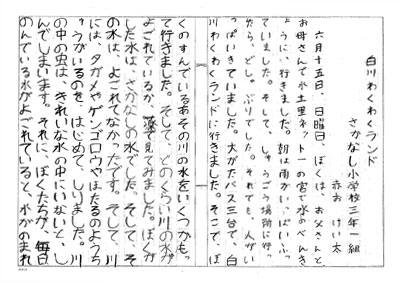 白川わくわくランド
さかなし小学校三年一組
赤お けい太
六月十五日、日曜日、ぼくは、お父さんと
お母さんで水土里ネット一の宮で水のべんき
ょうに、行きました。朝は雨がいっぱいふっ
ていました。そして、しゅうごう場所に行っ
たら、どしゃぶりでした。それでも、人がい
っぱいきていました。大がたバス三台で、白
川わくわくランドに行きました。そこで、ぼ
くのすんでいるあその川の水をいくつかもっ
て行きました。そして、どのくらい川の水が
よごれているか、薬で見てみました。ぼくが
した水は、さかなしの水でした。そして、そ
の水は、よごれてなかったです。そして、川
には、タガメやゲンゴロウやほたるのようち
ゅうがいるのを、はじめて、しりました。川
の中の虫は、きれいな水の中にいないと、し
んでしまいます。それに、ぼくたちが、毎日
のんでいる水がよごれていると、水がのまれ